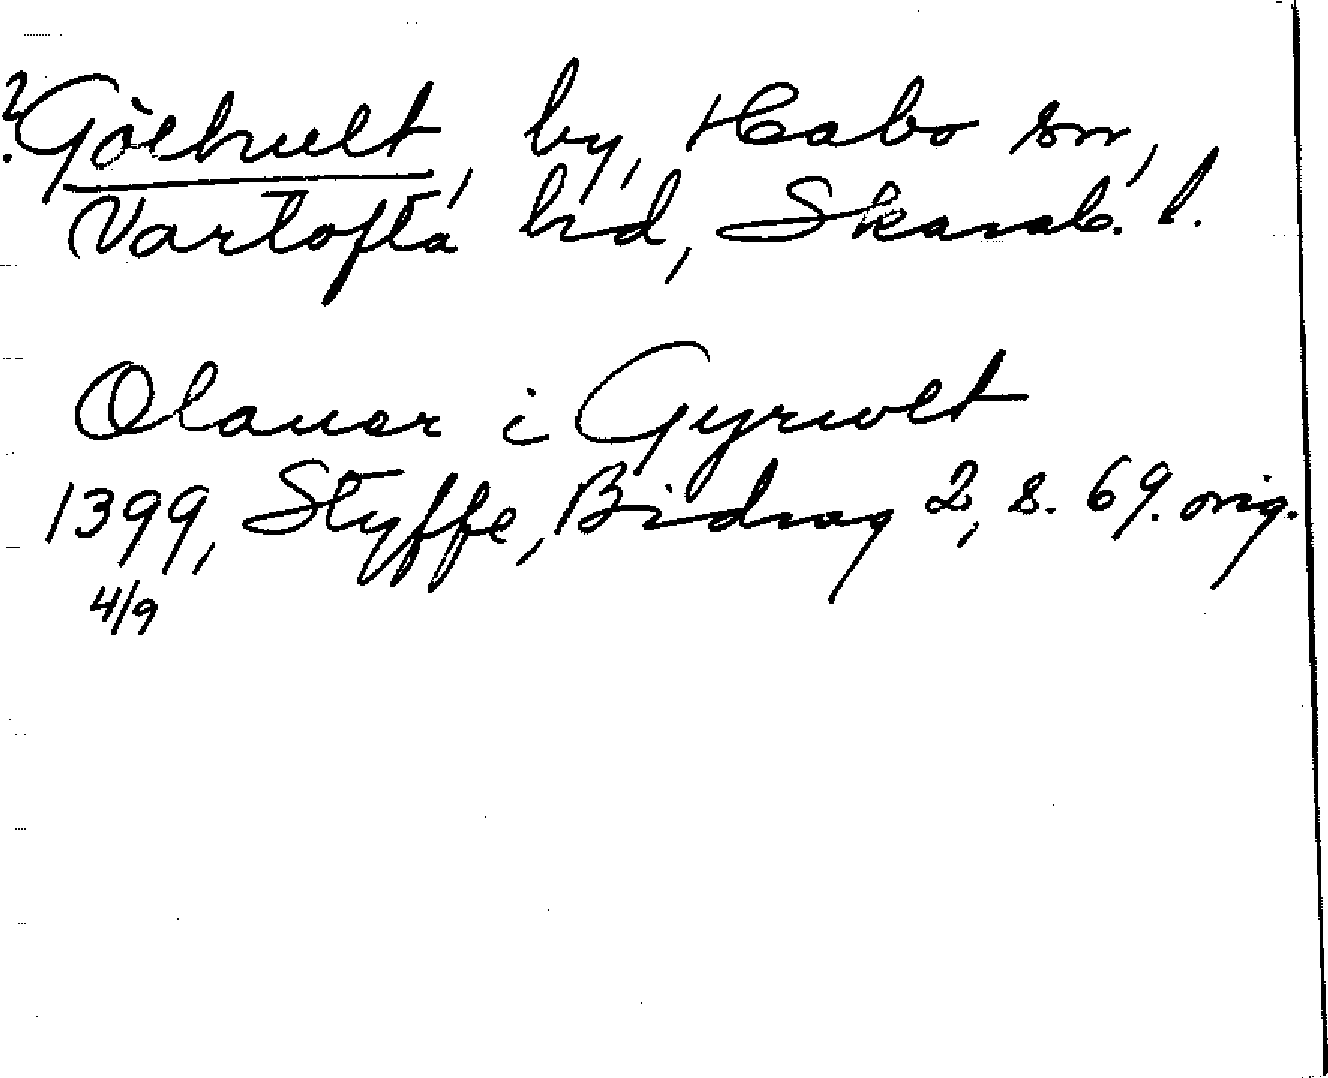 ? Gölhult, by, Habo sn,
Vartofta hd, Skarab. l.
Olauer i Gyrwlt
1399, Styffe, Bidrag 2, s. 69. orig.
4/9